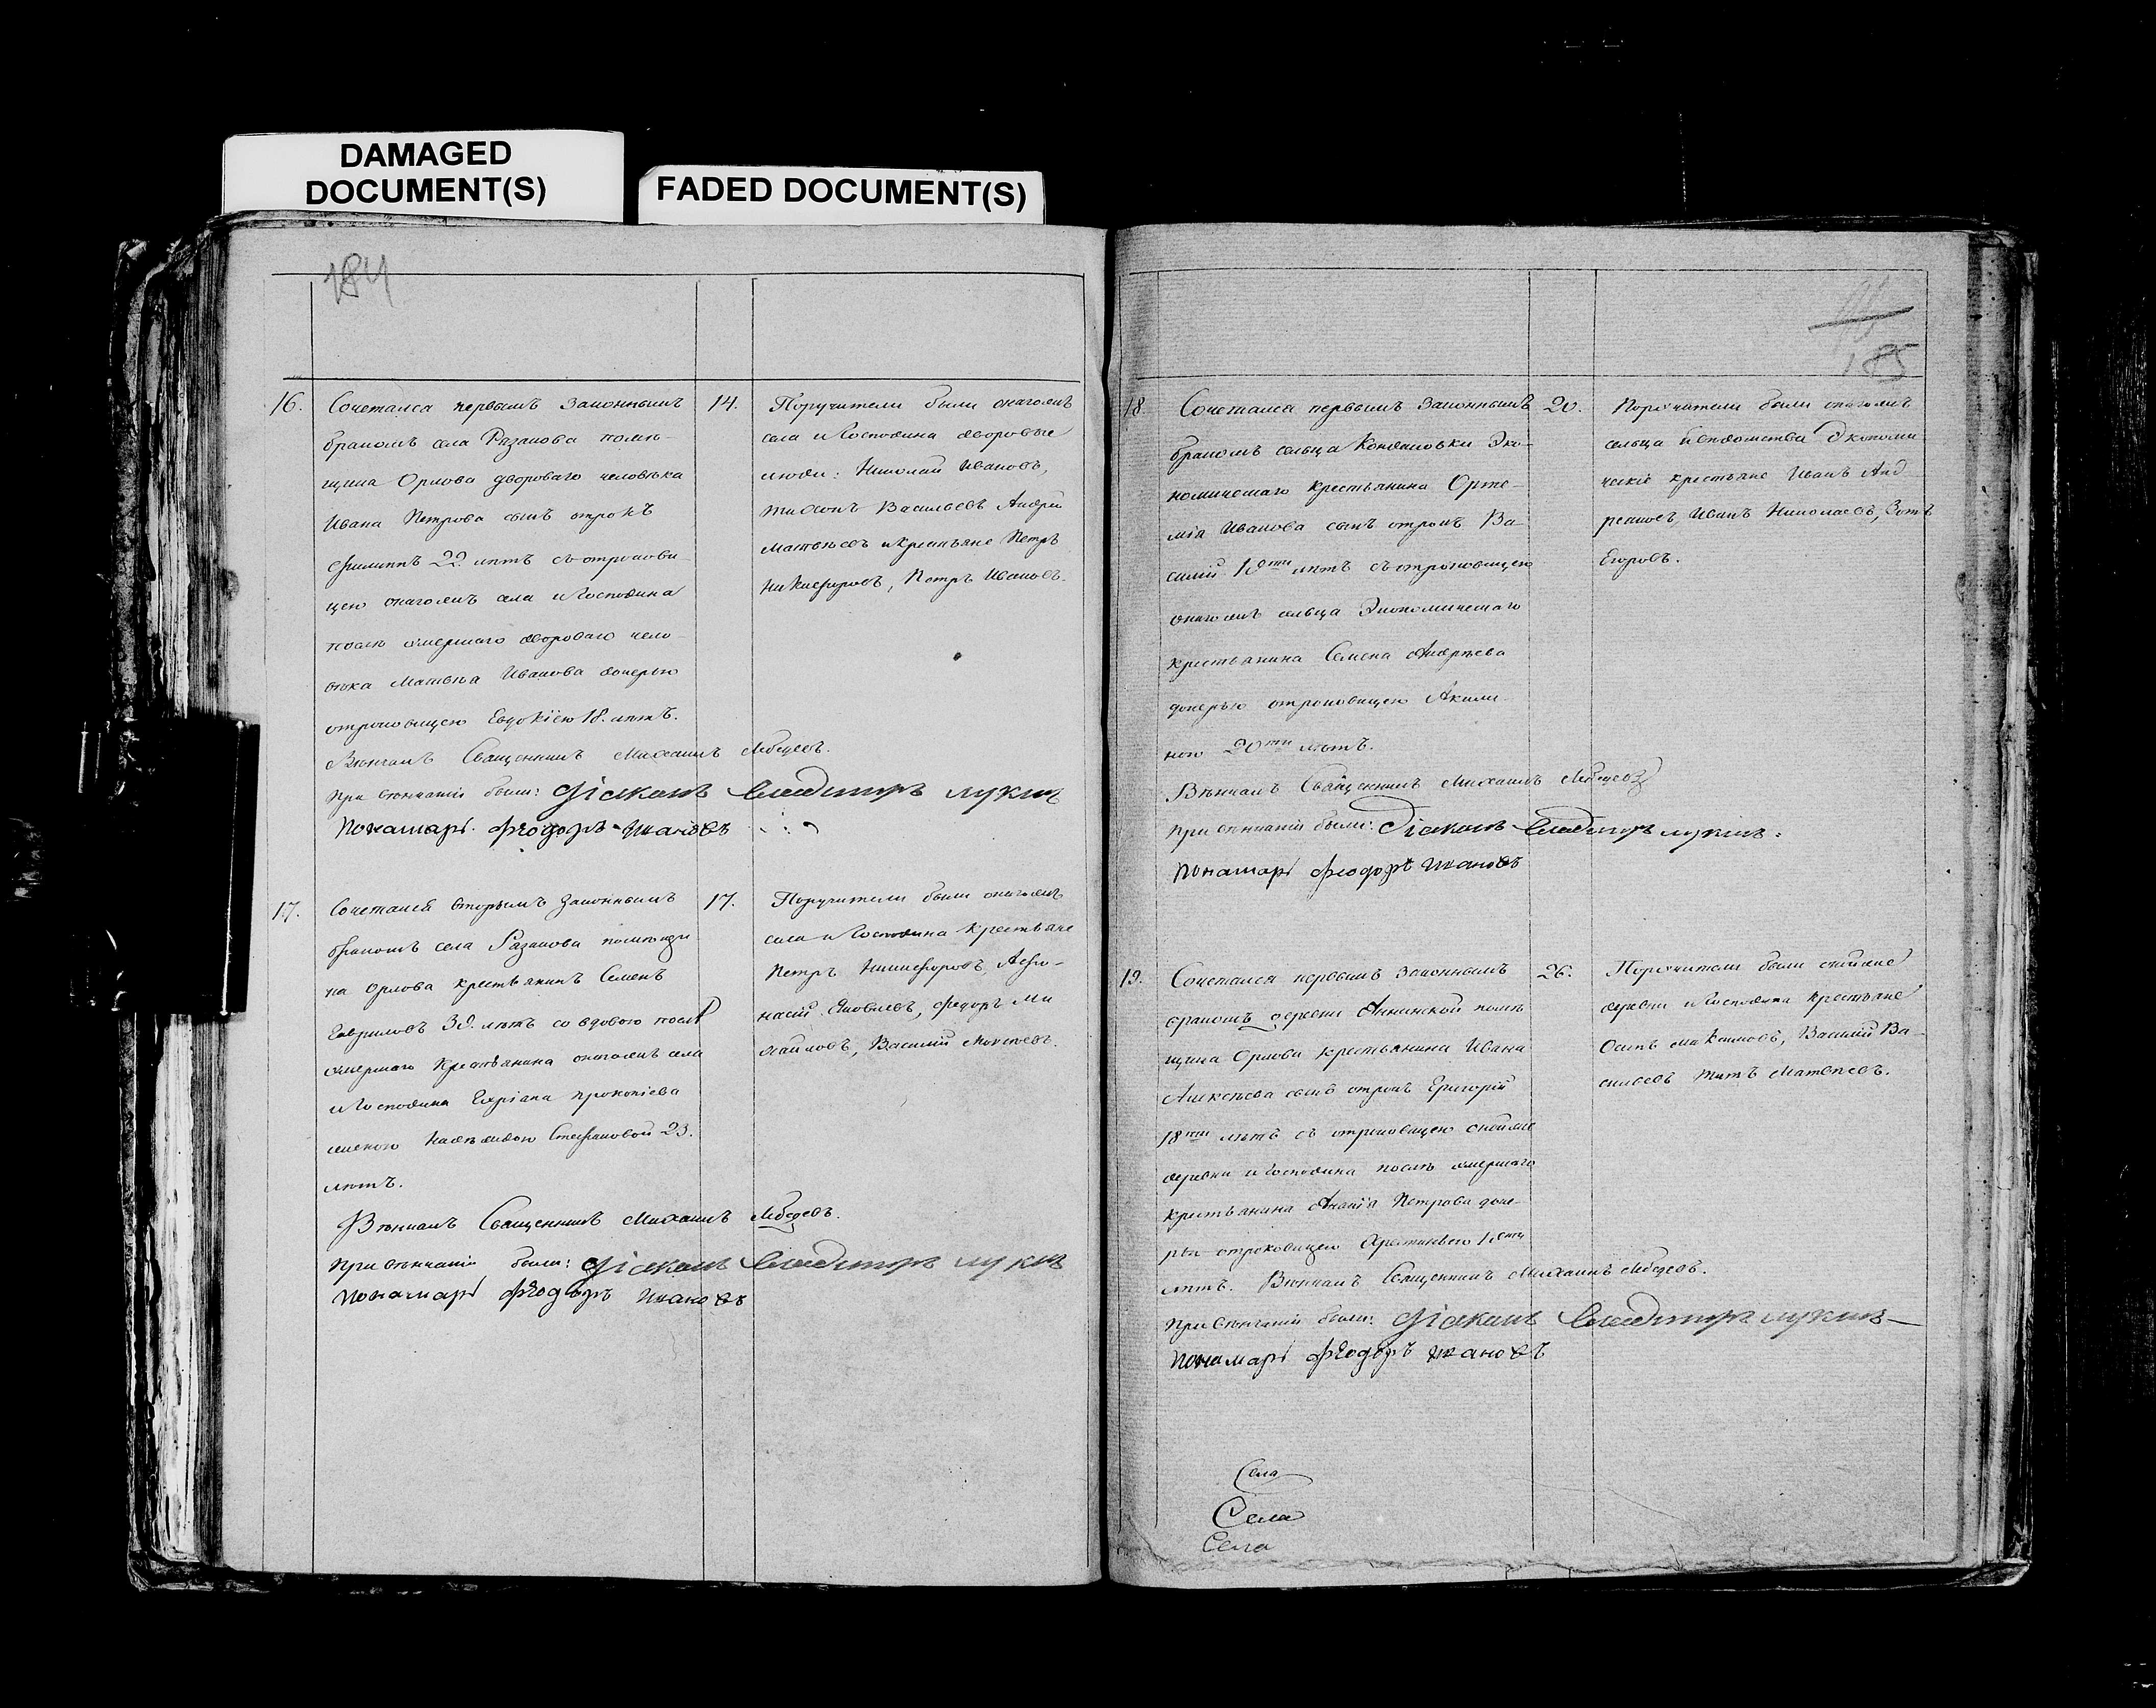 DAMAGED
DOCUMENT(S)
FADED DOCUMENT(S)
184
16.
Сочетался первымъ законнымъ
бракомъ села Рязанова помѣ-
щика Орлова двороваго человѣка
Ивана Петрова сынъ отрокъ
Филиппъ 22 лѣтъ съ отрокови-
цею онагожъ села и Господина
послѣ умершаго двороваго чело-
вѣка Матвѣа Иванова дочерью
отроковицею Евдокіею 18. лѣтъ.
Вѣнчалъ Священникъ Михаилъ Лебедевъ.
При вѣнчаніи были: Діаконъ Владимиръ Лукинъ
Понамарь Феодоръ Ивановъ
14.
Поручители были онагожъ
села и Господина дворовые
люди: Николай Ивановъ,
Тихонъ Васильевъ Андрей
Матвѣевъ и крестьяне Петръ
Никифоровъ, Петръ Ивановъ.
17.
Сочетался вторымъ законнымъ
бракомъ села Рязанова помѣщи
ка Орлова крестьянинъ Семенъ
Гавриловъ лѣтъ со вдовою послѣ
умершаго крестьянина онагожъ села
и Господина прокопіева
женою Надеждою Стефановой 23.
лѣтъ.
Вѣнчалъ Священникъ Михаилъ Лебедевъ.
При вѣнчаніи были: Діаконъ Владимиръ Лукинъ
Понамарь Феодоръ Ивановъ
17.
Поручители были онагожъ
села и Господина крестьяне
Петръ Никифоровъ, Афо-
насій Яковлевъ, Федоръ Ми
хайловъ, Василий Моисеевъ.
185
18
Сочетался первымъ законнымъ
бракомъ сельца Кондаковки Эко-
номическаго крестьянина Орте-
мія Иванова сынъ отрокъ Ва-
силий лѣтъ съ отроковицею
онагожъ сельца Экономическаго
крестьянина Семена Андрѣева
дочерью отроковицею Акили-
ною 20ти лѣтъ.
Вѣнчалъ Священникъ Михаилъ Лебедевъ
При вѣнчаніи были: Діаконъ Владимиръ Лукинъ:
Понамарь Феодоръ Ивановъ
20.
Поручители были онагожъ
сельца и вѣдомства Экономи
ческіе крестьяне Иванъ Анд
реяновъ, Иванъ Николаевъ, Зотъ
Егоровъ.
19.
Сочетался первымъ законнымъ
бракомъ деревни Аннинской помѣ
щика Орлова крестьянина Ивана
Алексѣева сынъ отрокъ Григорій
18ти лѣтъ съ отроковицею онойже
деревни и Господина послѣ умершаго
крестьянина Ананія Петрова доче-
рью отроковицею
лѣтъ. Вѣнчалъ Священникъ Михаилъ Лебедевъ.
При вѣнчаніи были: Діаконъ Владимиръ Лукинъ
Понамарь Феодоръ Ивановъ
26.
Поручители были онойже
деревни и Господина крестьяне
Осипъ Максимовъ, Василий Ва-
сильевъ Титъ Матвѣевъ.
Села
Села
Села